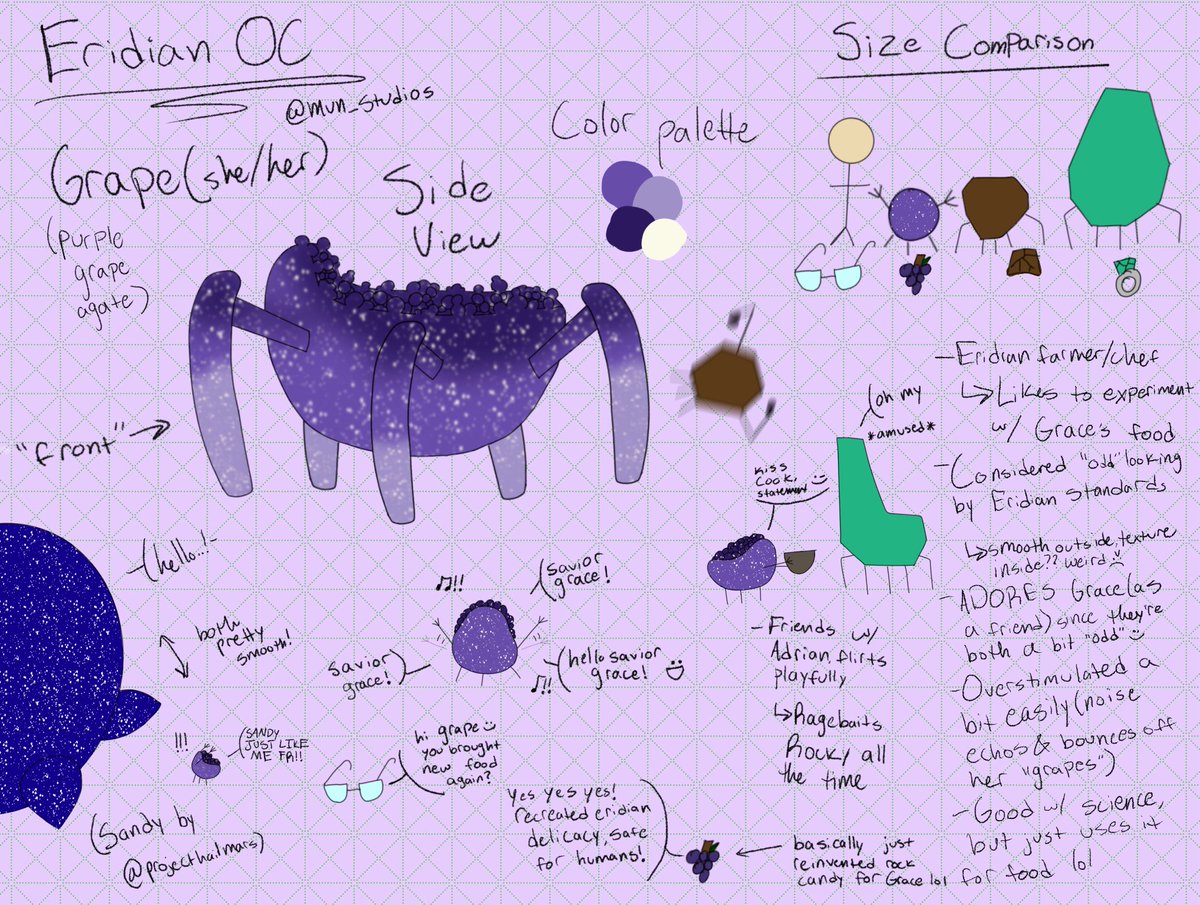 Eridian OC
@mvn_studios
Grape (she/her)
(purple
grape
agate)
Side
View
Color palette
Size Comparison
"front"
(hello..!-
both
pretty
smooth!
!!!
(SANDY
JUST LIKE
ME FR!!
(Sandy by
@projecthailmars)
♫!!
(savior
grace!
savior
grace!)
♫!!
(hello savior
grace!
hi grape
you brought
new food
again?
Yes yes yes!
recreated eridian
delicacy, safe
for humans!
basically just
reinvented rock
candy for Grace lol
kiss
cook,
statement
(oh my
*amused*
- Friends w/
Adrian, flirts
playfully
↳ Ragebaits
Rocky all
the time
- Eridian farmer/chef
↳ Likes to experiment
w/ Grace's food
- Considered "odd" looking
by Eridian standards
↳ smooth outside, texture
inside?? weird
- ADORES Grace (as
a friend) since they're
both a bit "odd"
- Overstimulated a
bit easily (noise
echos & bounces off
her "grapes")
- Good w/ science,
but just uses it
for food lol